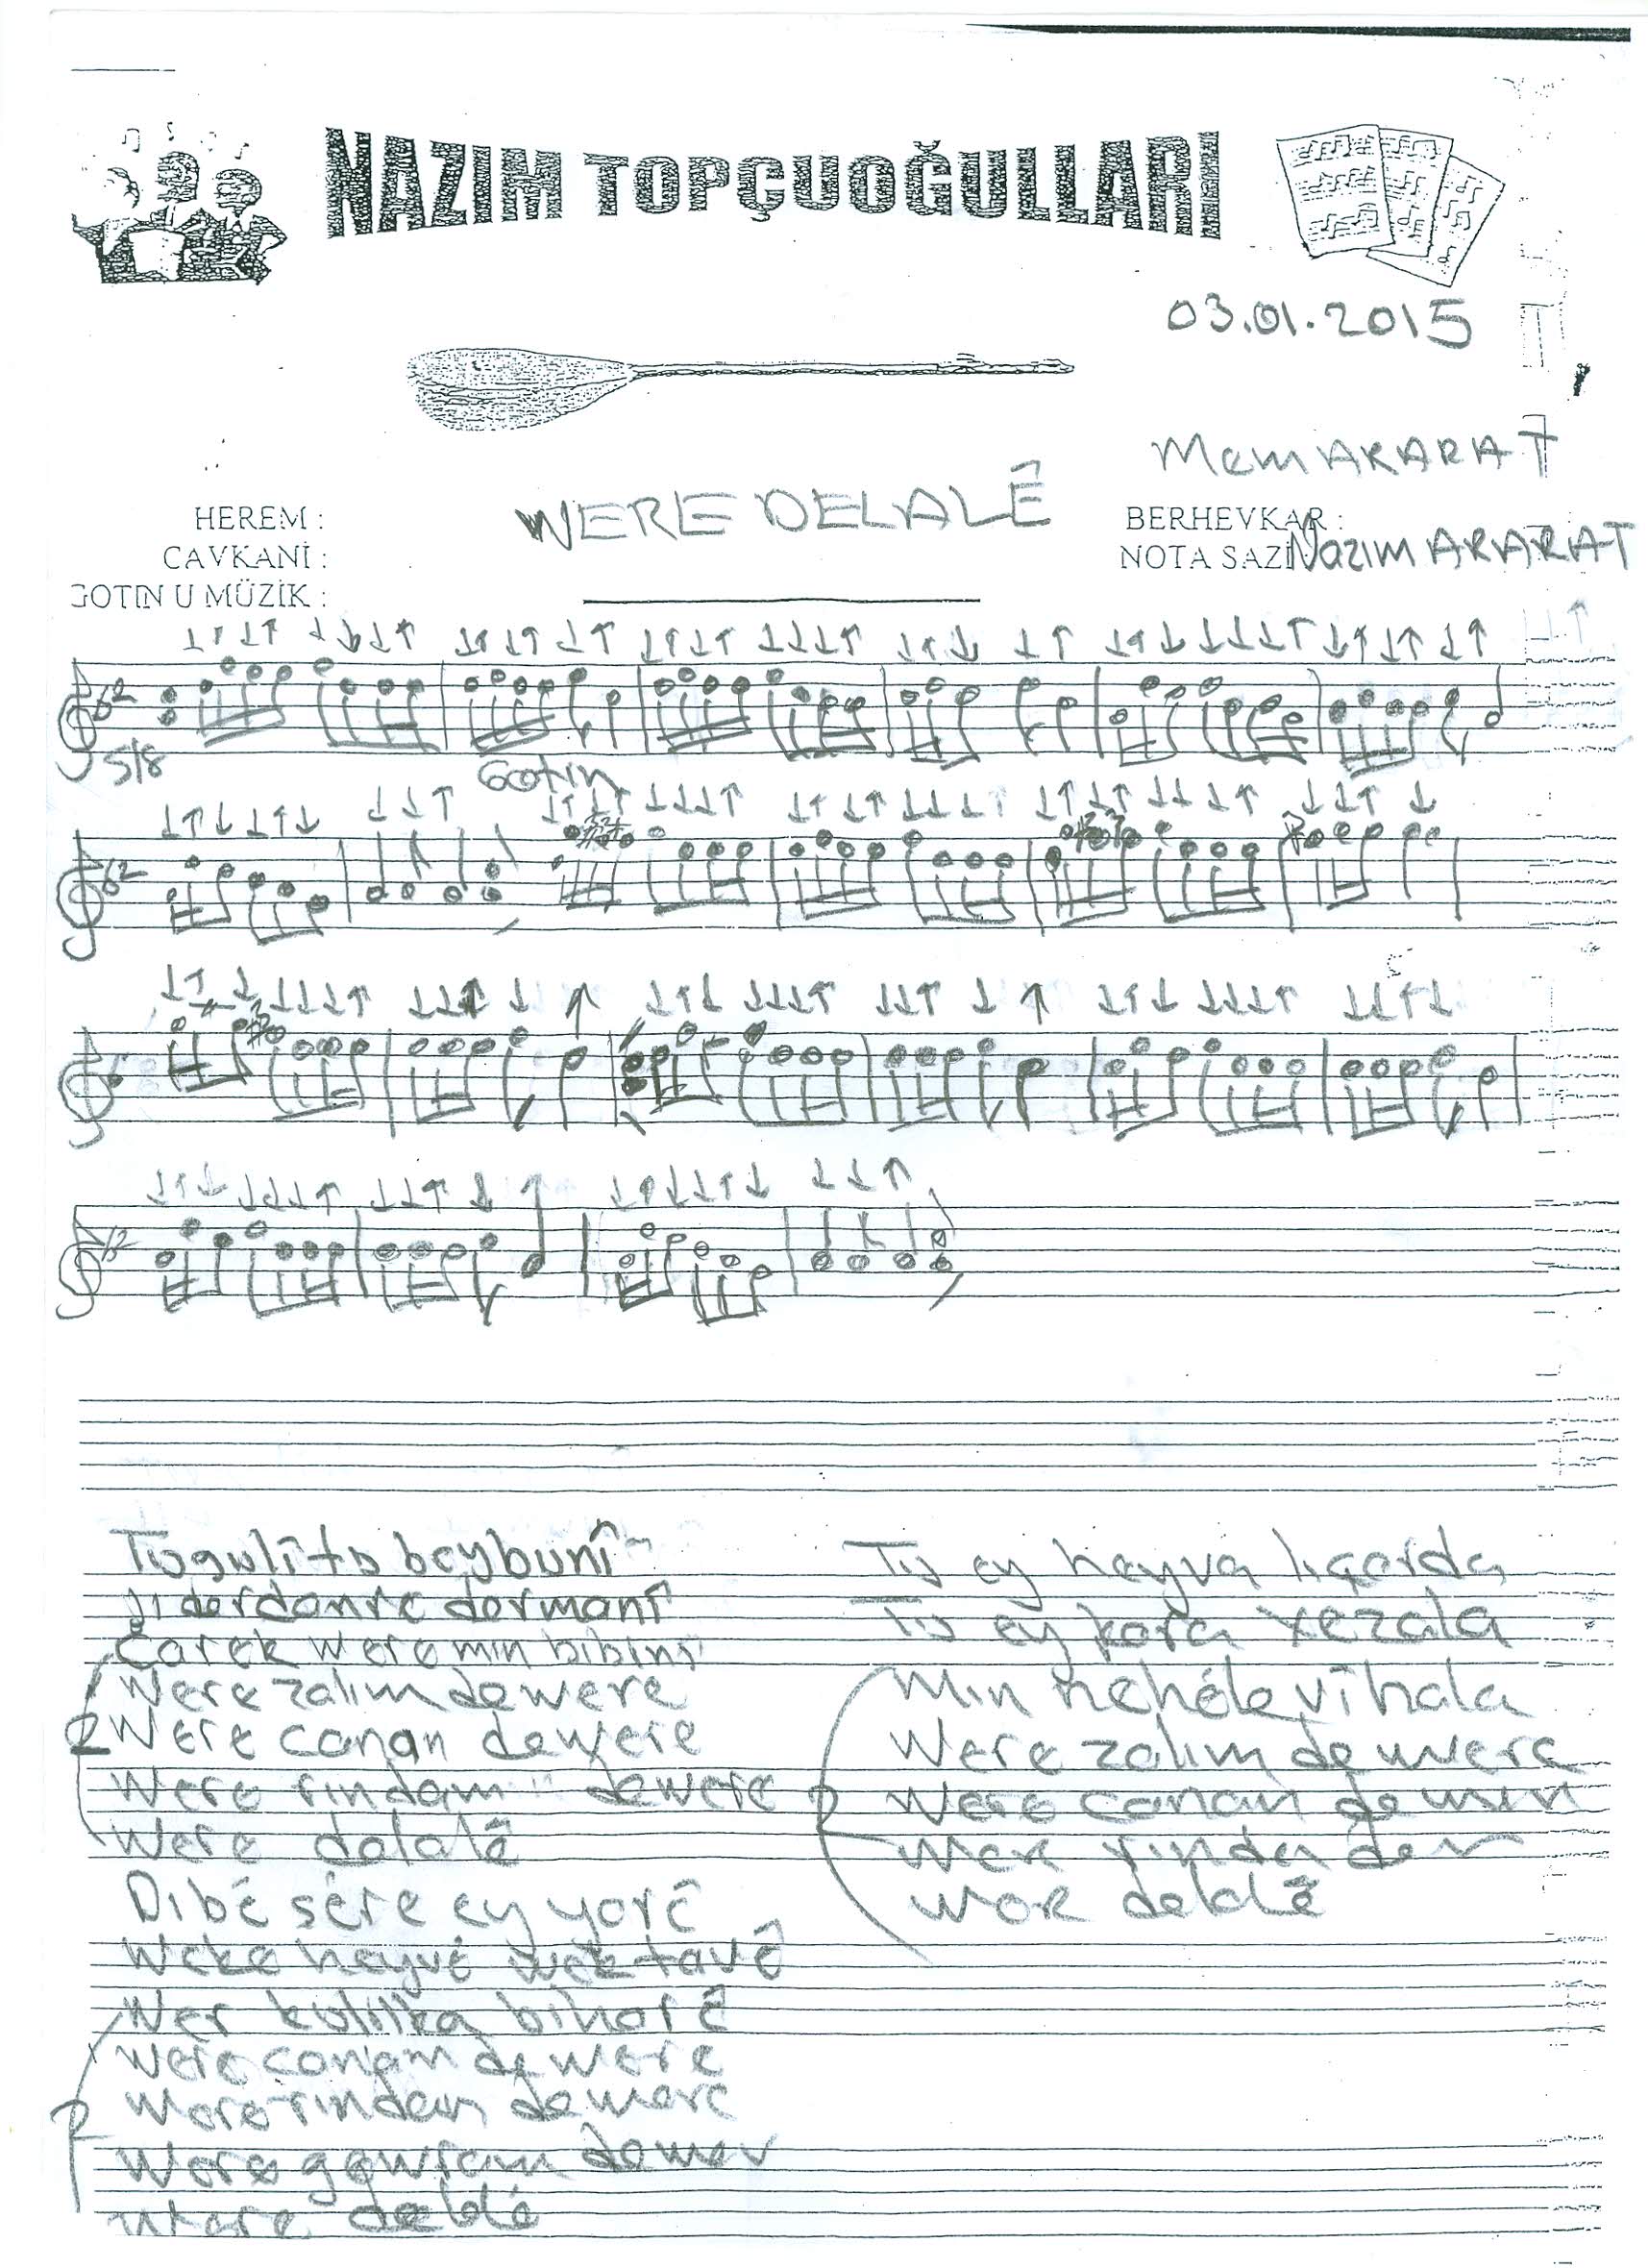 NAZIM TOPÇUOĞULLARI
03.01.2015
Mem ARARAT
HEREM :
WERE DELALÊ
BERHEVKAR :
CAVKANİ :
NOTA SAZİ Nazım ARARAT
GOTIN U MÜZİK :
5/8
Gotin
Tu gulî tu beybunî
Ji derdanre dermanî
Carek were min bibini
Were zalım de were
2 Were canan de were
Were rindam de were
Were delalê
Dibé sére ey yarê
Weke heyvé wek tavê
Wer kulilka biharê
Were canam de were
Were rindam de were
Were gewram de wer
Were delalé
Tu ey heyva
Tu ey xezala
Min nehéle vî hala
Were zalım de were
Were canan de
Were rinda de
Wer delalê